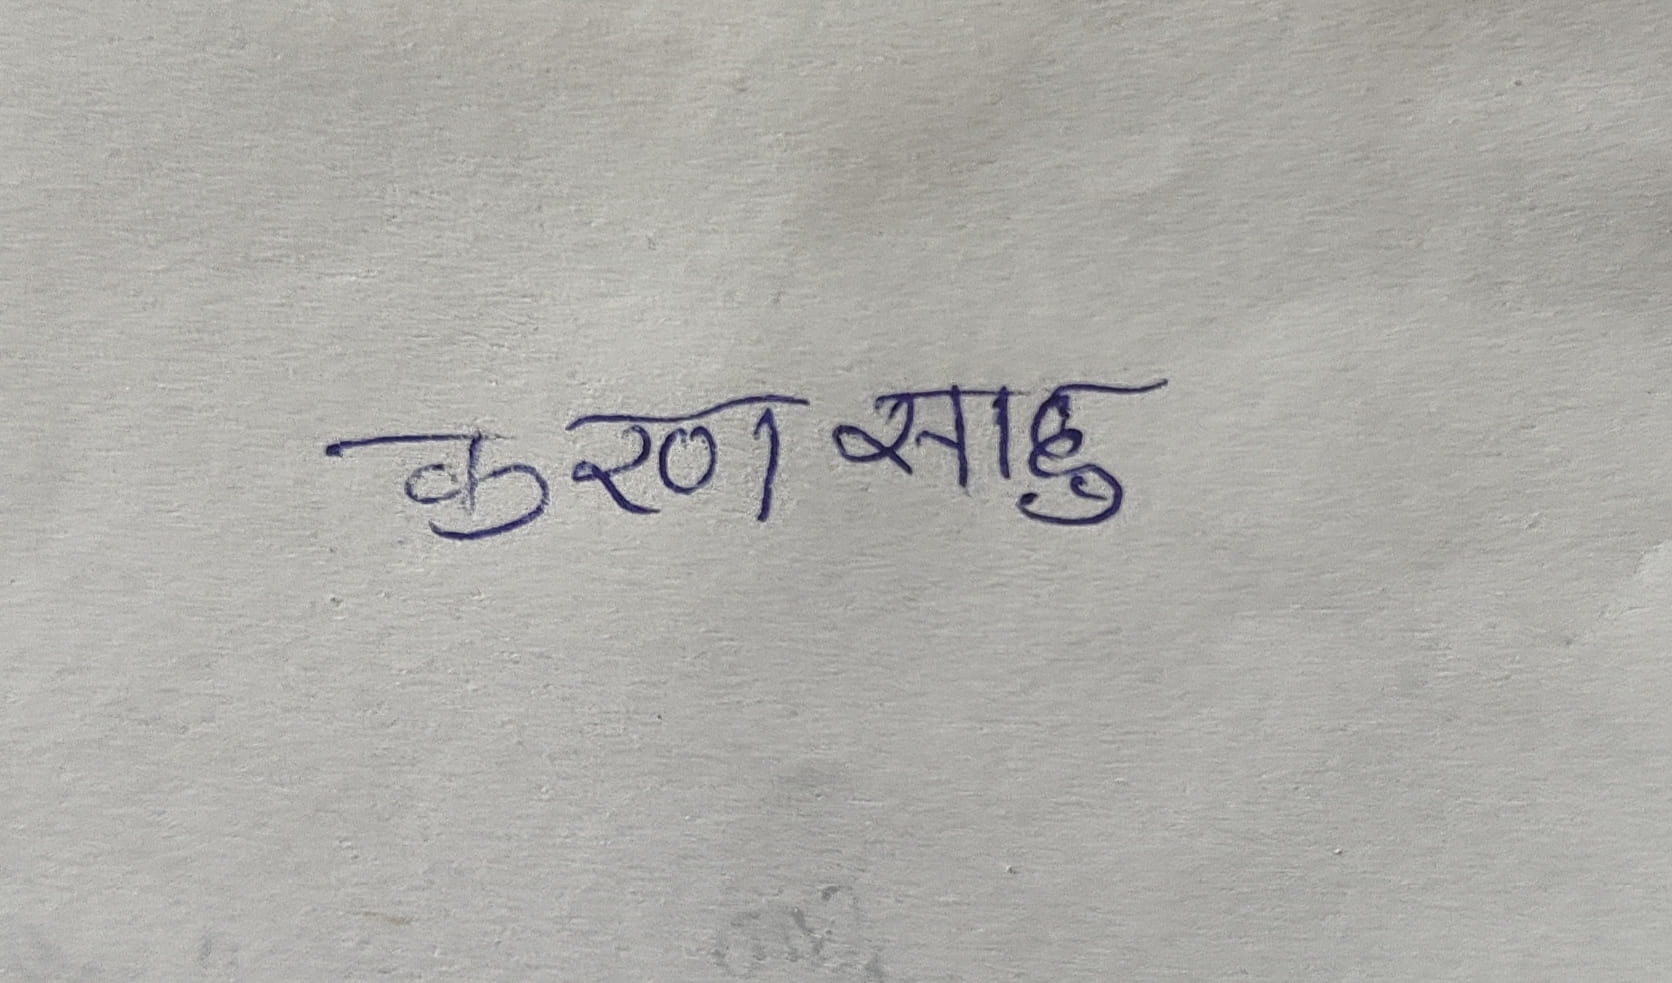 करण साहु